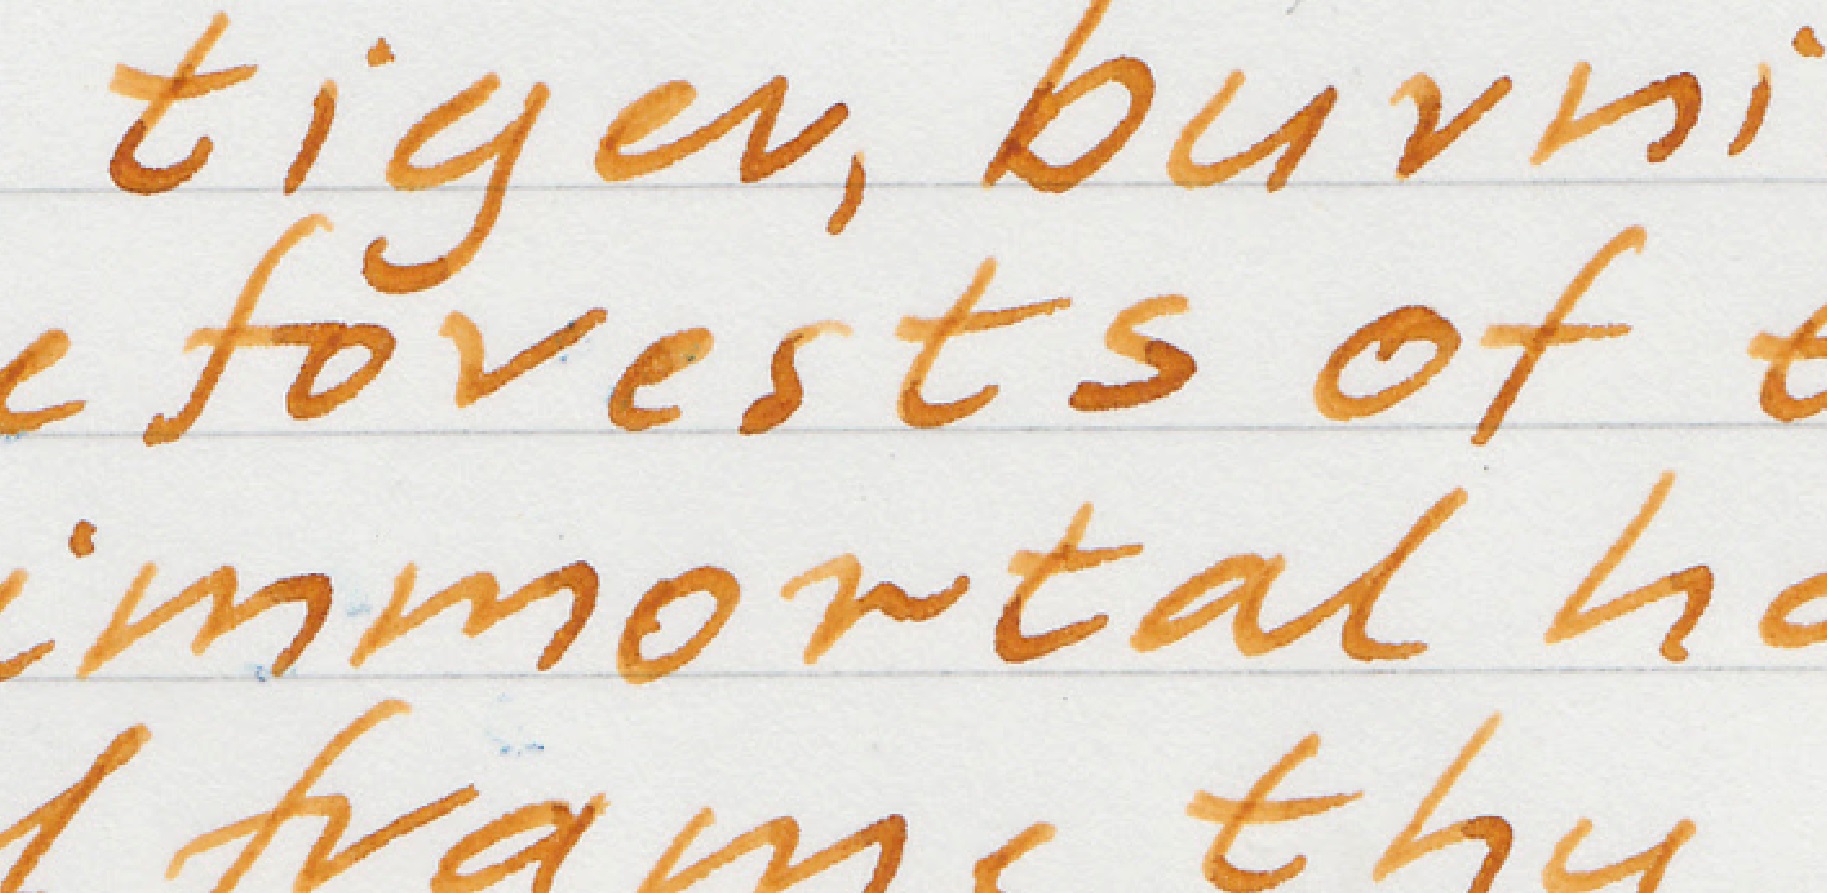 tiger, burni
e forests of t
immortal ha
d frame thy